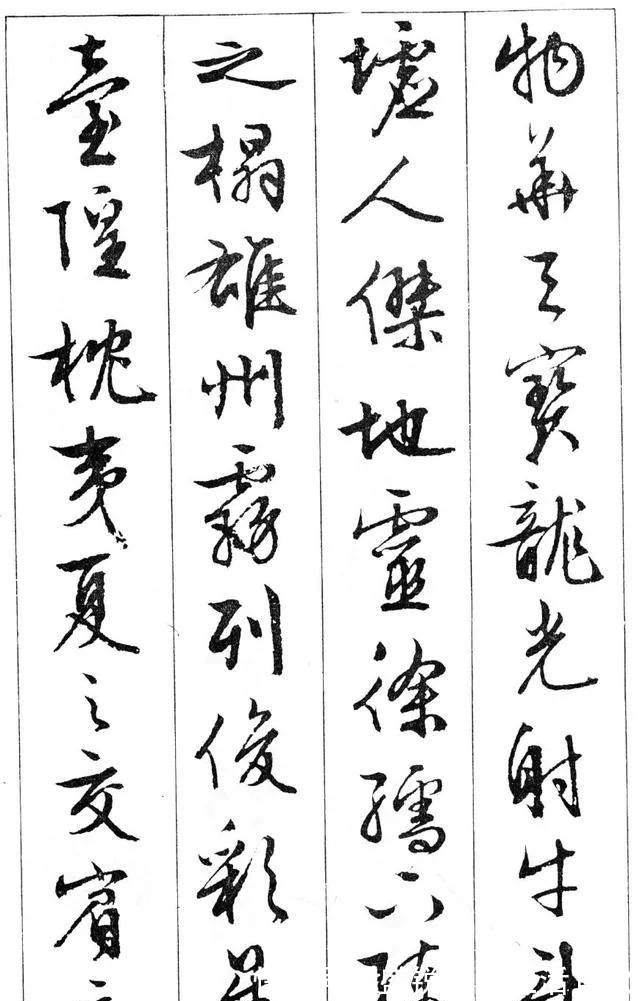 物華天寶龍光射牛斗
墟人傑地靈徐孺下陳
之榻雄州霧列俊彩星
臺隍枕夷夏之交賓主